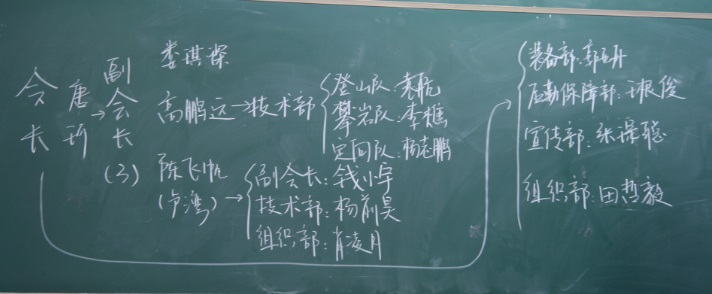 会长
唐
副会长
(3)
娄琪琛
高鹏远→技术部
登山队:袁航
攀岩队:李樵
定向队:杨志鹏
陈飞帆
副会长:钱小宇
技术部:杨前昊
组织部:肖凌月
装备部:郭
后勤保障部:
宣传部:张
组织部:田哲毅